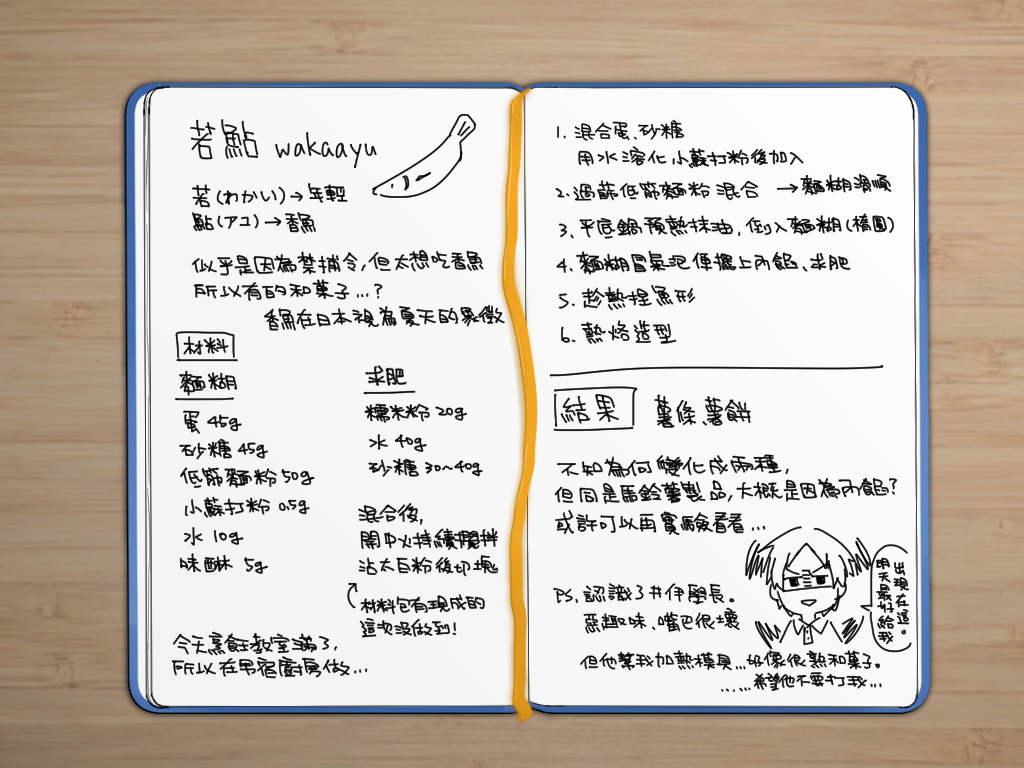 若鮎 wakaayu
若(わかい)→年輕
鮎(アユ)→香魚
似乎是因為禁捕令,但太想吃香魚
所以有的和菓子...?
香魚在日本視為夏天的象徵
材料
麵糊
蛋 45g
砂糖 45g
低筋麵粉 50g
小蘇打粉 0.5g
水 10g
味醂 5g
求肥
糯米粉 20g
水 40g
砂糖 30~40g
混合後,
開中火持續攪拌
沾太白粉後切塊
材料包有現成的
這次沒做到!
今天烹飪教室滿了,
所以在吊宿廚房做...
1. 混合蛋、砂糖
用水溶化小蘇打粉後加入
2. 過篩低筋麵粉混合 →麵糊滑順
3. 平底鍋預熱抹油,倒入麵糊(橢圓)
4. 麵糊冒氣泡便擺上內餡、求肥
5. 趁熱捏魚形
6. 熱烙造型
結果 薯條、薯餅
不知為何變化成兩種,
但同是馬鈴薯製品,大概是因為內餡?
或許可以再實驗看看...
PS. 認識了井伊學長。
惡趣味、嘴巴很壞
但他幫我加熱模具...好像很熟和菓子。
......希望他不要打我...
出現在這。
明天最好給我